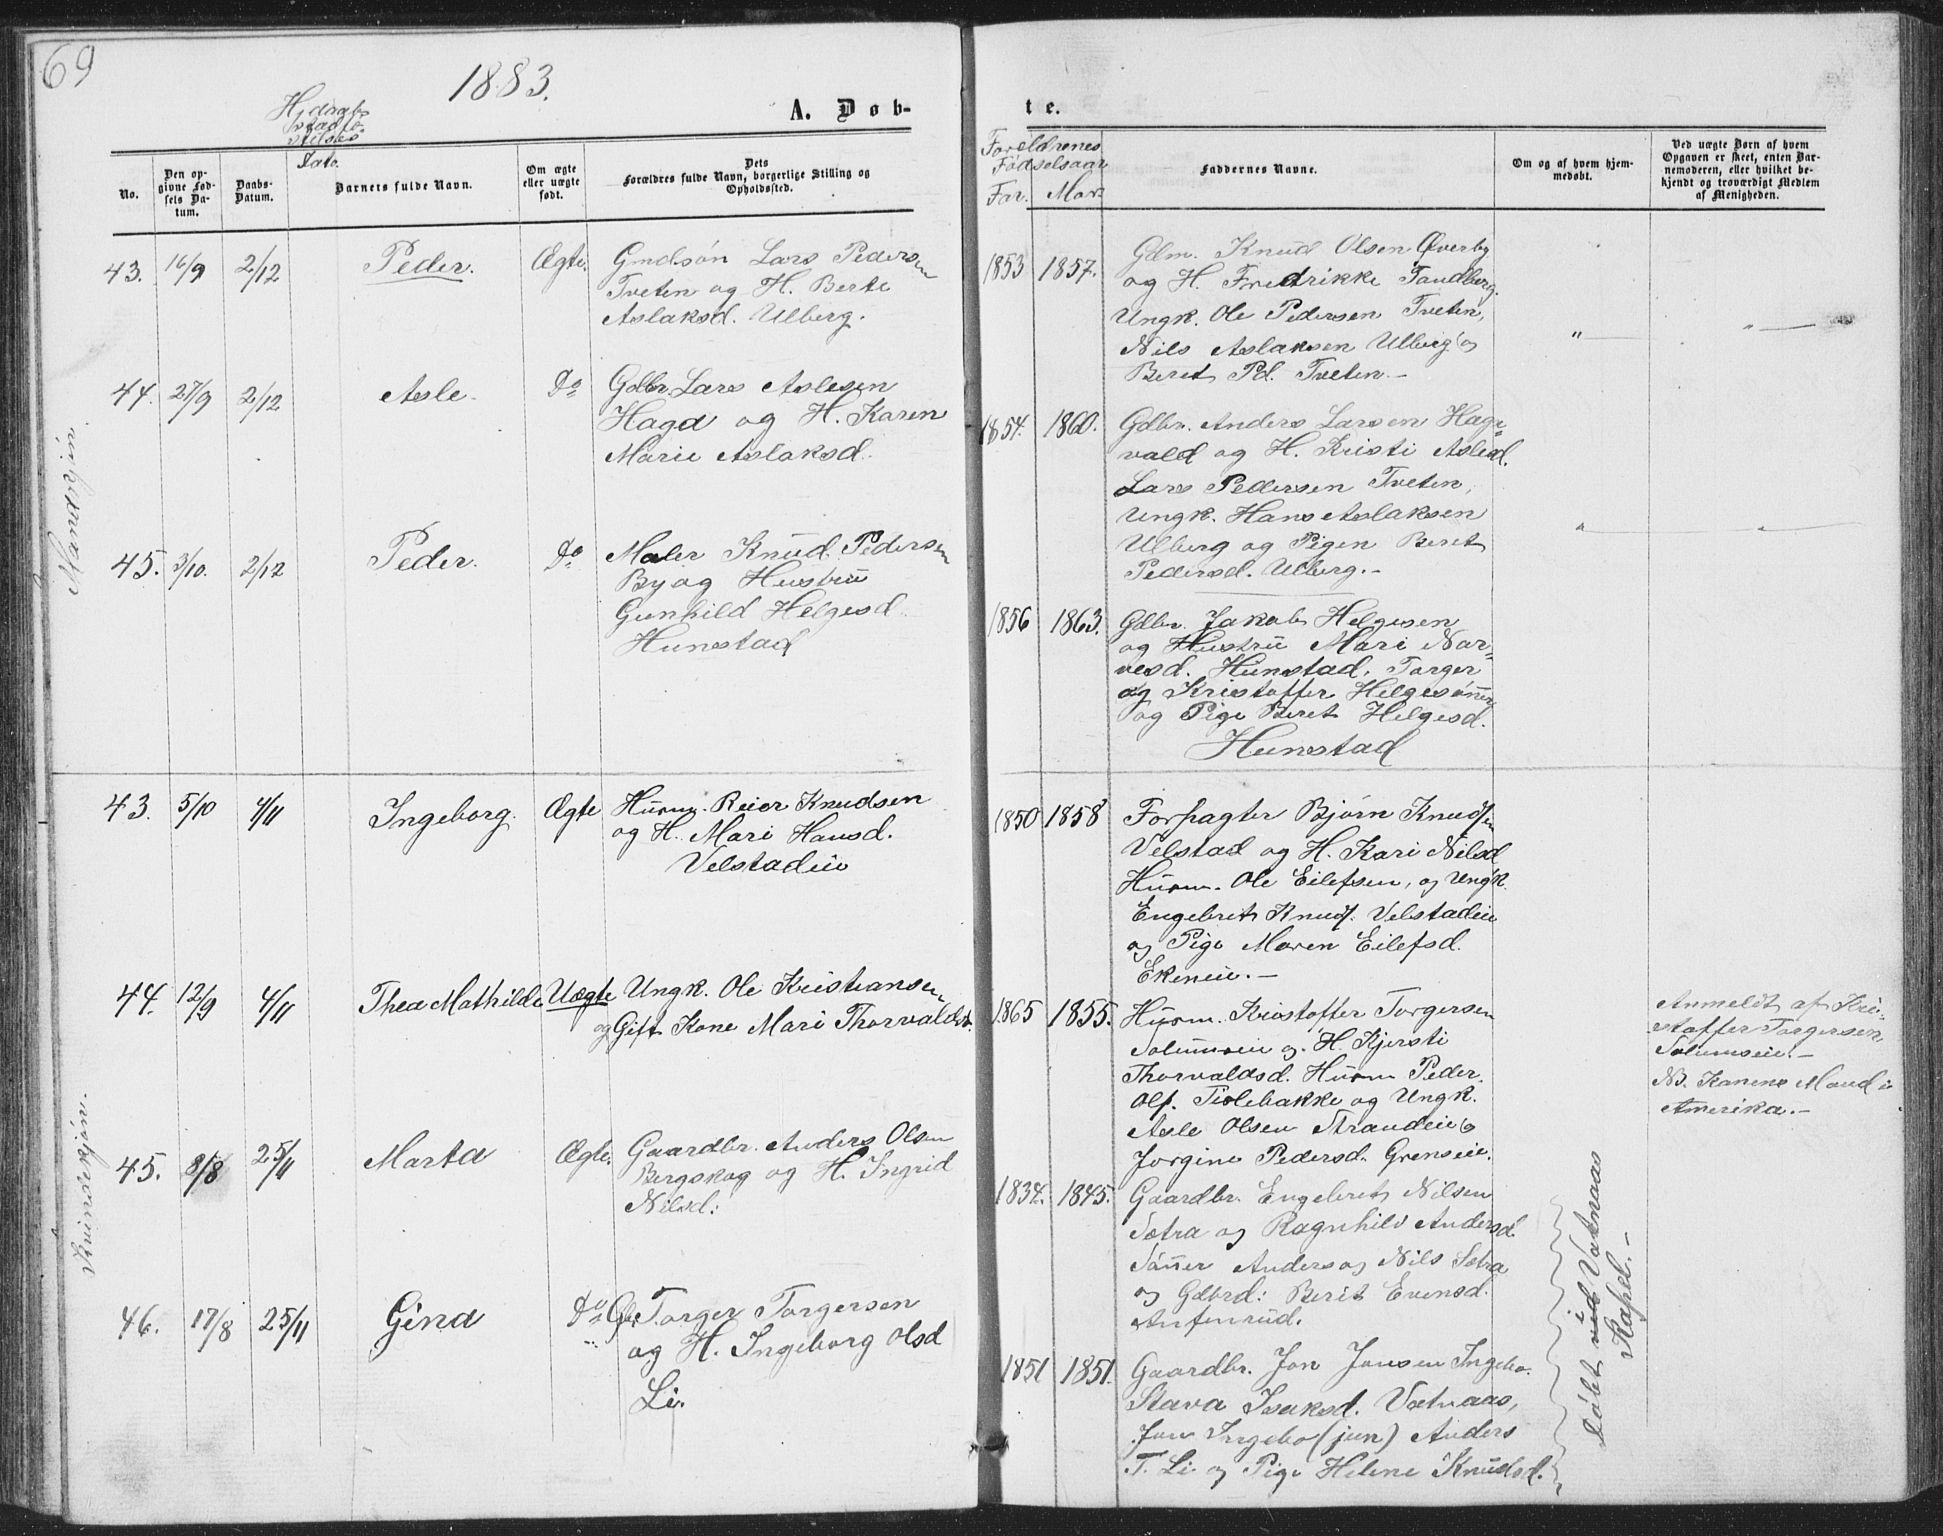 69
1883.
A. Døb-
te.
Dato.
Forældrenes
Fødselsaar
Far. Mor.
No.
Den op-
givne Fød-
sels Da-
tum.
Daabs-
Datum.
Barnets fulde Navn.
Om ægte
eller uægte
født.
Dets
Forældres fulde Navn, borgerlige Stilling og
Opholdssted.
Faddernes Navne.
Om og af hvem hjem-
medøbt.
Ved uægte Børn af hvem
Opgaven er skeet, enten Bar-
nemoderen, eller hvilket be-
kjendt og troværdigt Medlem
af Menigheden.
43. 16/9 2/12 Peder. Ægte. Gmdsøn Lars Pedersen
Tveten og H. Berte
Aslaksd. Ulberg.
1853 1857. Gdm. Knud Olsen Øverby
og H. Fredrikke Tandberg.
Ungk. Ole Pedersen Tveten,
Nils Aslaksen Ulberg og
Beret Pd. Tveten.-
" —
" —
44. 27/9 2/12 Asle. Do Gdbr. Lars Aslesen
Haga og H. Karen
Marie Aslaksd.
1854. 1860. Gdbr. Anders Larsen Hage-
vald og H. Kristi Aslesd.
Lars Pedersen Tveten,
Ungk. Hans Aslaksen
Ulberg og Pigen Beret
Pedersd. Ulberg.-
" —
" —
45. 3/10. 2/12 Peder. Do Maler Knud Pedersen
By og Hustru
Gunhild Helgesd.
Hunstad
1856 1863. Gdbr. Jakob Helgesen
og Hustru Mari Nar-
vesd. Hunstad, Torger
og Kristoffer Helgesønner
og Pige Beret Helgesd.
Hunstad
43. 5/10 4/11 Ingeborg. Ægte Husm. Reier Knudsen
og H. Mari Hansd.
Velstadeie
1850 1858 Forpagter Bjørn Knudsen
Velstad og H. Kari Nilsd
Husm. Ole Eilefsen, og Ungk.
Engebret Knuds. Velstadeie
og Pige Maren Eilefsd.
Ekeneie.-
44. 12/9 4/11 Thea Mathilde Uægte Ungk. Ole Kristiansen
og Gift Kone Mari Thorvaldsd.
1865 1855. Husm. Kristoffer Torgersen
Solumseie og H. Kjersti
Thorvaldsd. Husm Peder
Ols. Tislebakke og Ungk.
Asle Olsen Strandeie og
Jorgine Pedersd. Grenseie.
Anmeldt af Kri-
stoffer Torgersen,
Solumseie.-
NB. Konens Mand i
Amerika.-
45. 8/8 25/11 Marta Ægte. Gaardbr. Anders Olsen
Bergskog og H. Ingrid
Nilsd:
1834. 1845. Gaardbr. Engebret Nilsen
Sætra og Ragnhild Andersd.
Sønner Anders og Nils Sætra
og Gdbrd: Berit Evensd.
Anfinrud.
46. 17/8 25/11 Gina Do Gbr. Torger Torgersen
og H. Ingeborg Olsd
Li.
1851 1851. Gaardbr. Jon Jonsen Ingebo.
Stava Isaksd. Vatnaas,
Jon Ingebo (jun) Anders
T. Li og Pige Helene Knudsd.
Døbt vid i Vatnaas
Kapel.-